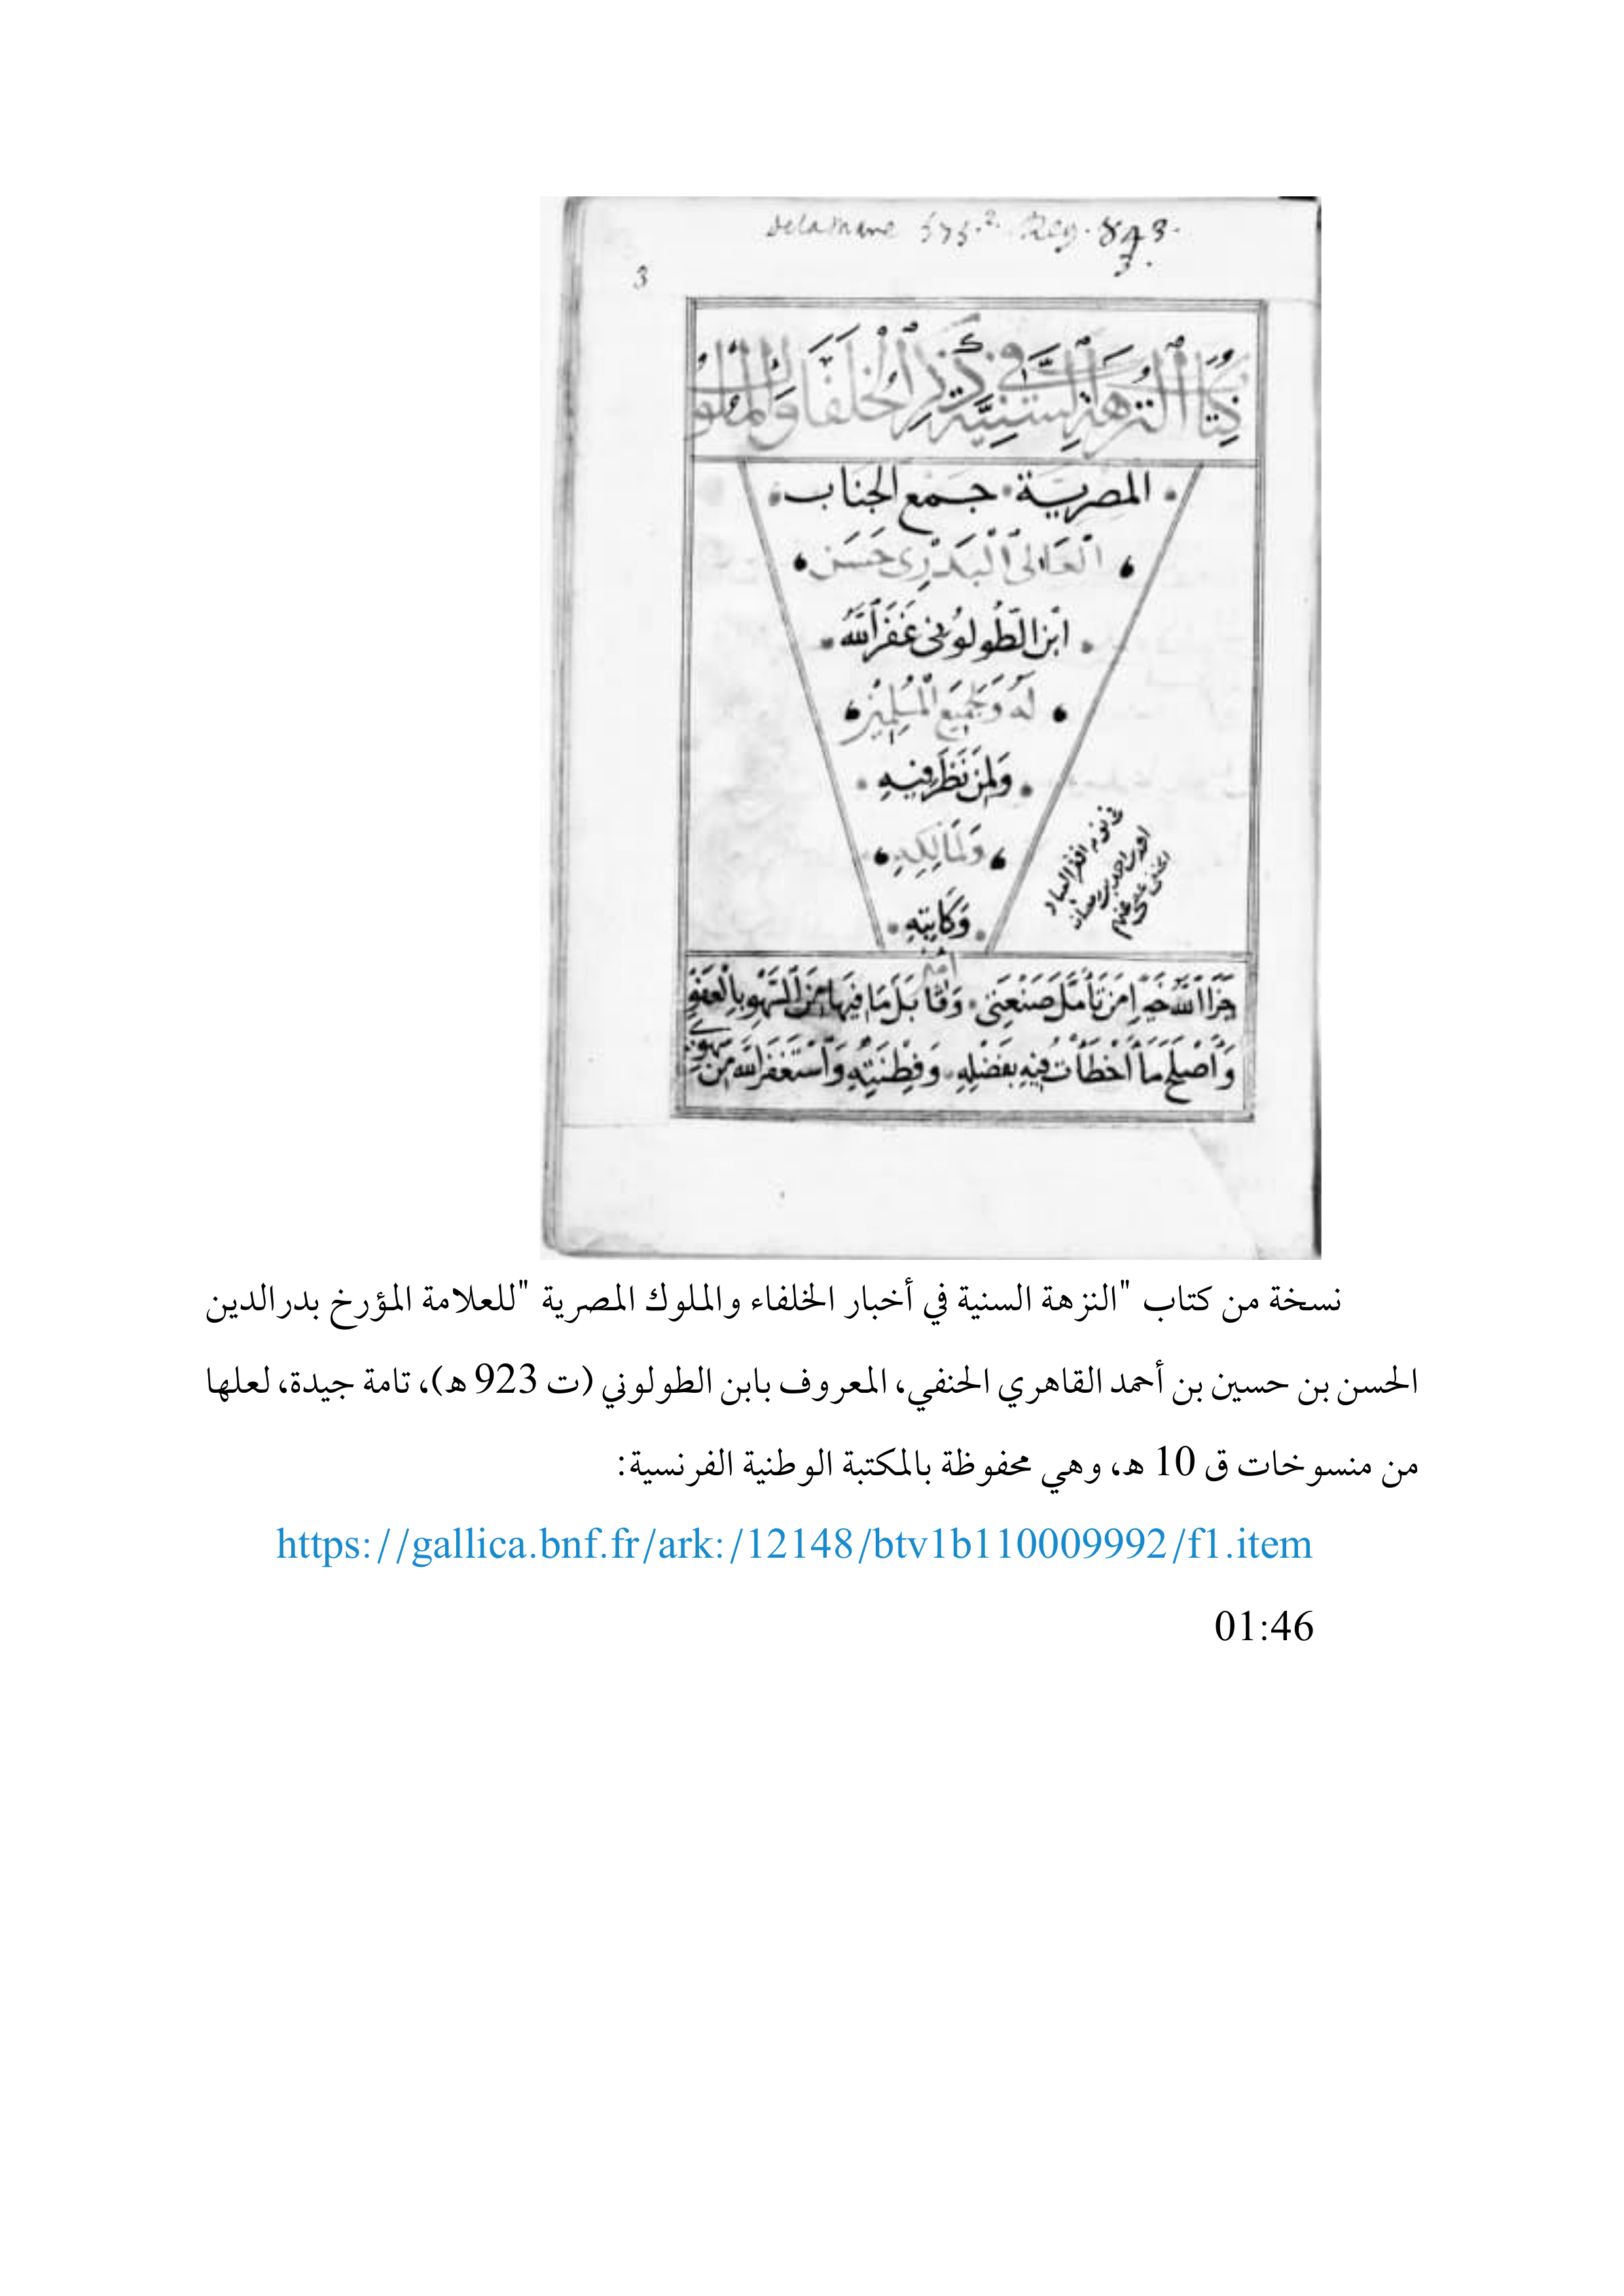 Delamare 575.² Reg. 843.
3.
3
كِتَابُ ٱلنُّزهَةِ ٱلسَّنِيَّةِ فِي ذِكْرِ ٱلْخُلَفَا وَٱلْمُلُوكِ
المصريَّة جمع الجناب
ٱلْعَالِى ٱلْبَدْرِى حَسَن
ابْن الطُّولُونِى غَفَرَ ٱللَّهُ
لَهُ وَلِجَمِيعِ ٱلْمُسْلِمِينَ
وَلِمَنْ نَظَرَ فِيهِ
وَلِمَالِكِهِ
وَكَاتِبِهِ
افقر العباد
احمد بن رمضان
الحنفى
جَزَا ٱللَّهُ خَيْرًا مَنْ تَأَمَّلَ صَنْعَتِى وَقَابَلَ مَا فِيهَا مِنَ ٱلسَّهْوِ بِالْعَفْوِ
وَأَصْلَحَ مَا أَخْطَأْتُ فِيهِ بِفَضْلِهِ وَفِطْنَتِهِ وَأَسْتَغْفِرُ ٱللَّهَ مِنْ سَهْوِى
نسخة من كتاب "النزهة السنية في أخبار الخلفاء والملوك المصرية "للعلامة المؤرخ بدرالدين
الحسن بن حسين بن أحمد القاهري الحنفي، المعروف بابن الطولوني (ت 923 ه)، تامة جيدة، لعلها
من منسوخات ق 10 ه، وهي محفوظة بالمكتبة الوطنية الفرنسية:
https://gallica.bnf.fr/ark:/12148/btv1b110009992/f1.item
01:46